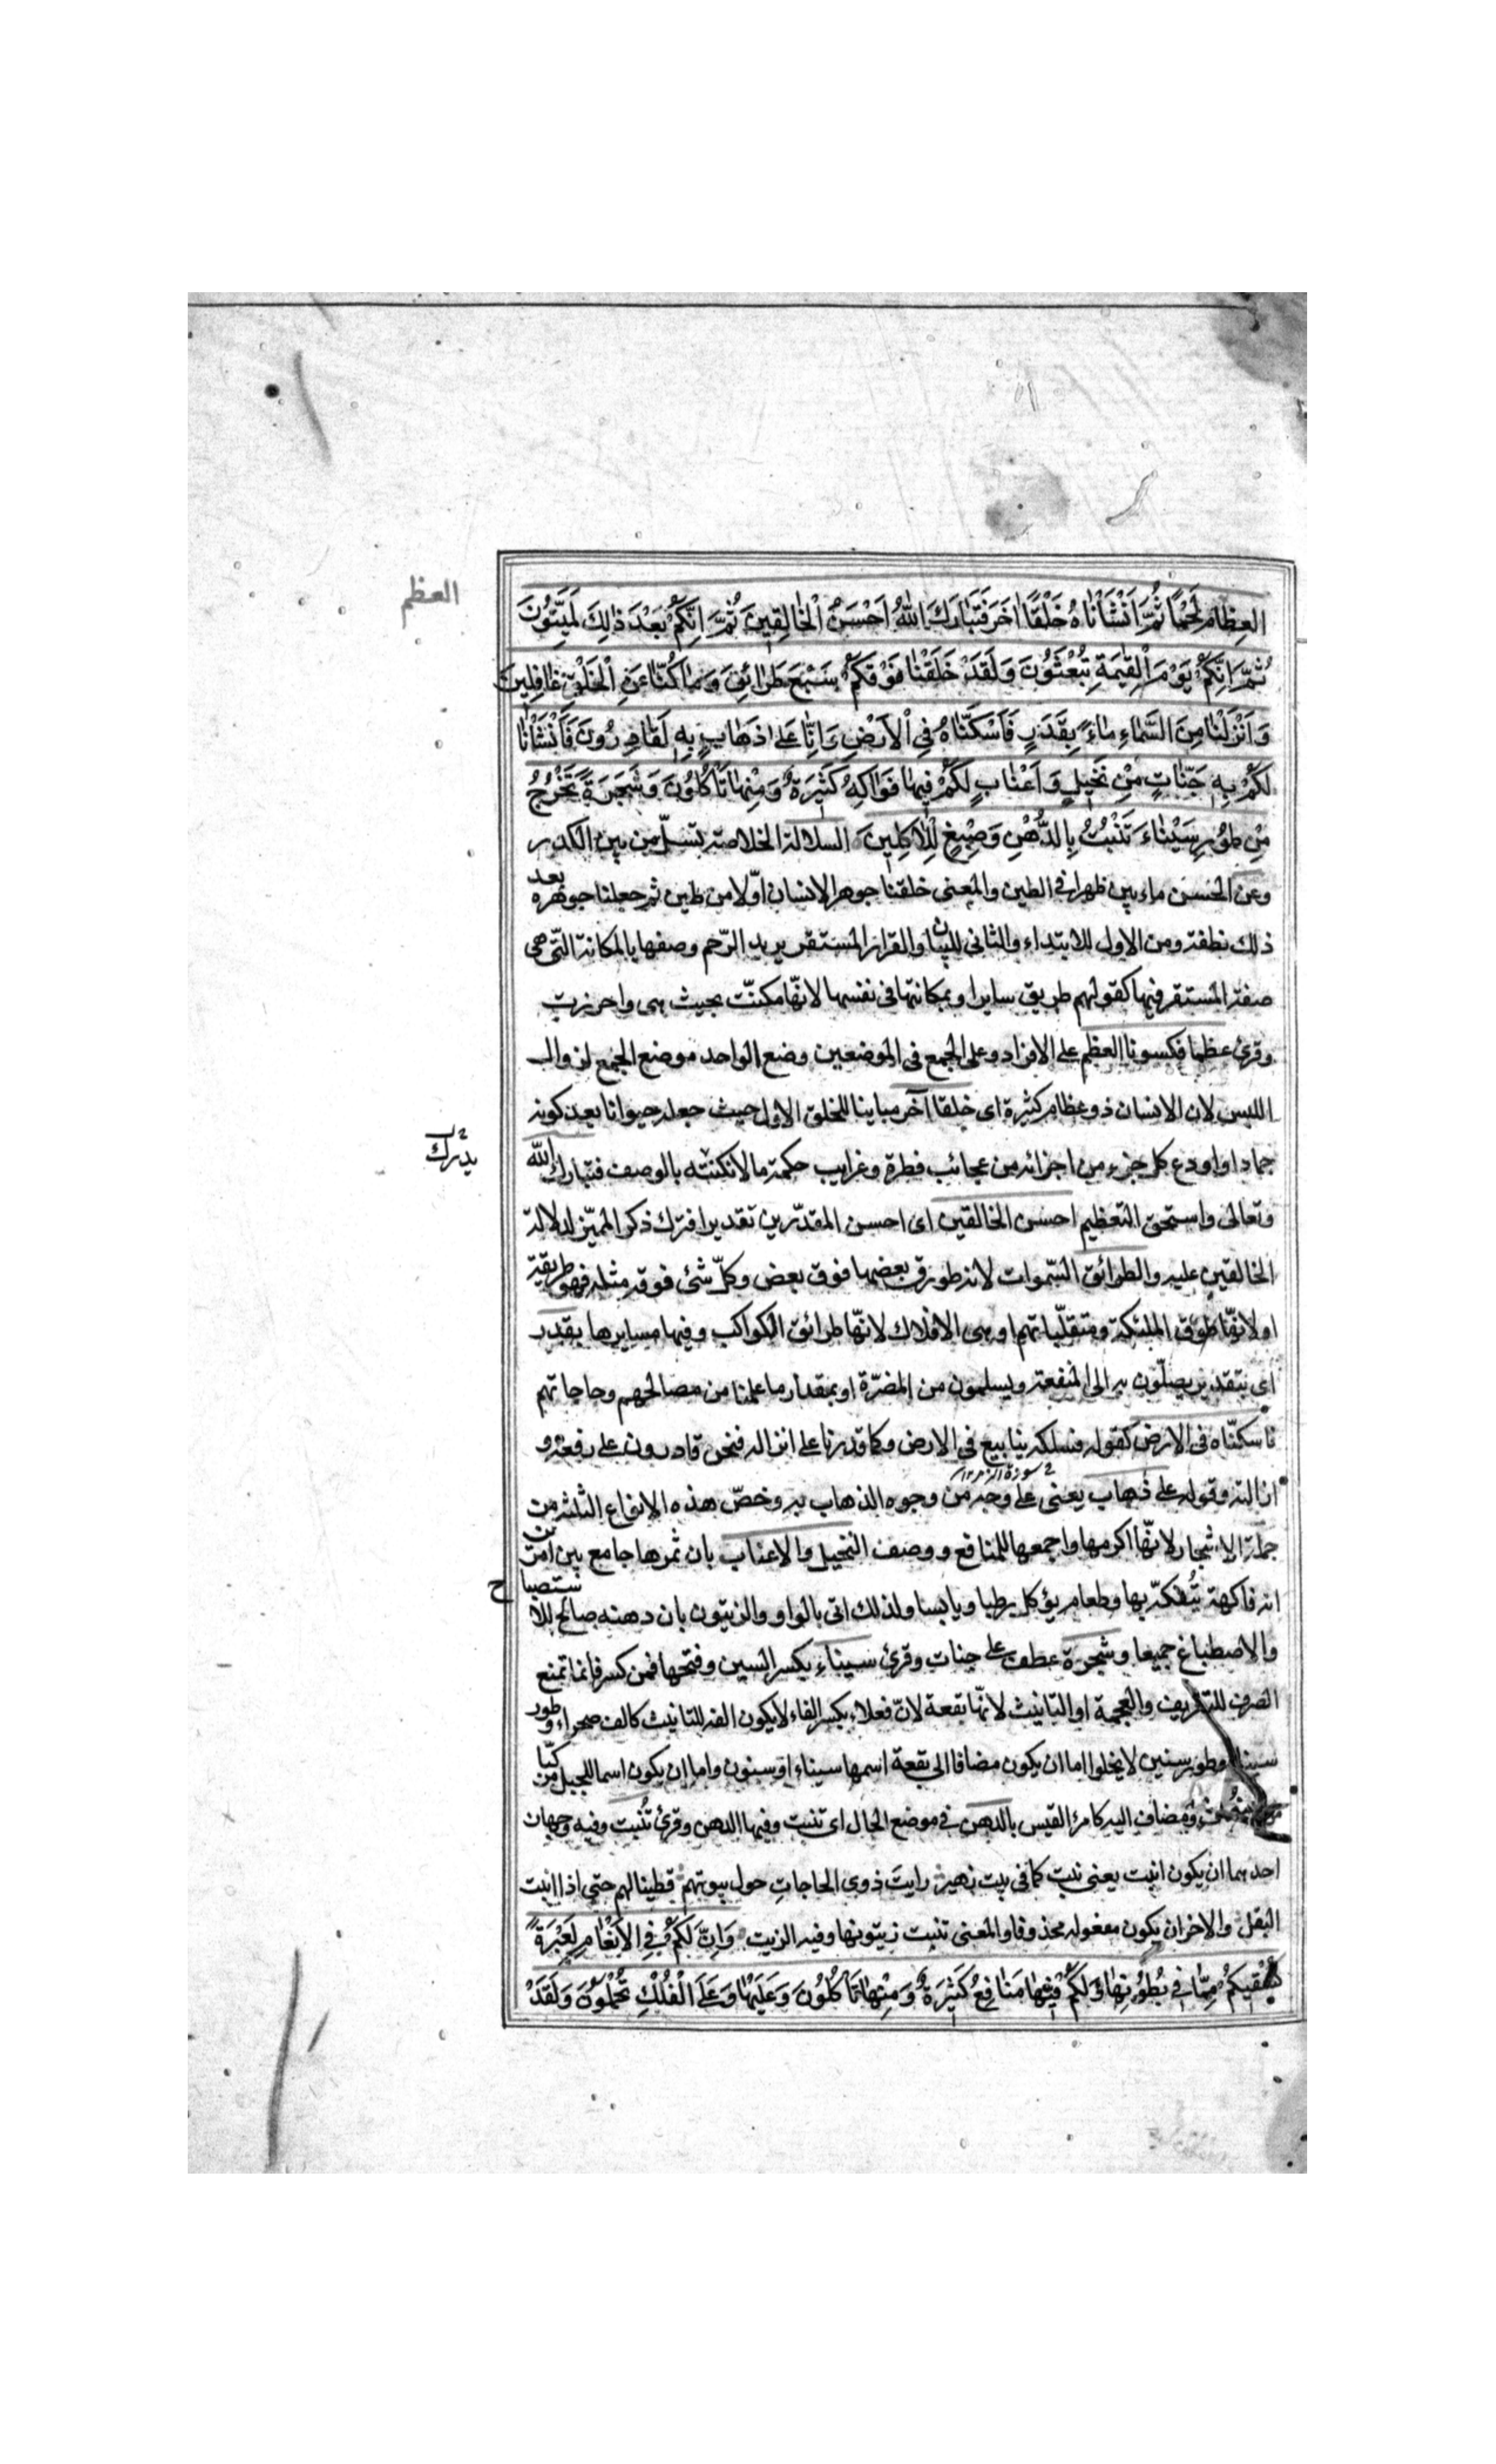 العظم
العِظَامَ لَحْمًا ثُمَّ اَنْشَاْنَاهُ خَلْقًا اٰخَرَ فَتَبَارَكَ اللّٰهُ اَحْسَنُ الْخَالِقِينَ ثُمَّ اِنَّكُمْ بَعْدَ ذٰلِكَ لَمَيِّتُونَ
ثُمَّ اِنَّكُمْ يَوْمَ الْقِيٰمَةِ تُبْعَثُونَ وَلَقَدْ خَلَقْنَا فَوْقَكُمْ سَبْعَ طَرَائِقَ وَمَا كُنَّا عَنِ الْخَلْقِ غَافِلِينَ
وَاَنْزَلْنَا مِنَ السَّمَاءِ مَاءً بِقَدَرٍ فَاَسْكَنَّاهُ فِي الْاَرْضِ وَاِنَّا عَلٰى ذَهَابٍ بِهِ لَقَادِرُونَ فَاَنْشَاْنَا
لَكُمْ بِهِ جَنَّاتٍ مِنْ نَخِيلٍ وَاَعْنَابٍ لَكُمْ فِيهَا فَوَاكِهُ كَثِيرَةٌ وَمِنْهَا تَاْكُلُونَ وَشَجَرَةً تَخْرُجُ
مِنْ طُورِ سَيْنَاءَ تَنْبُتُ بِالدُّهْنِ وَصِبْغٍ لِلْاٰكِلِينَ السلالة الخلاصة تسلّ من بين الكدر
وعن الحسن ماء بين ظهراني الطين والمعنى خلقنا جوهر الانسان اوّلا من طين ثم جعلنا جوهره بعد
ذلك نطفة ومن الاول للابتداء والثانى للبيان والقرار المستقر يريد الرّحم وصفها بالمكانة التّى هى
صفة المستقر فيها كقولهم طريق سايرا وبمكانتها فى نفسها لانّها مكنّت بحيث هى واحرزت
وقرئ عظما فكسونا العظم على الافراد وعلى الجمع فى الموضعين وضع الواحد موضع الجمع لزوال
اللبس لان الانسان ذو عظام كثيرة اى خلقا آخر مباينا للخلق الاول حيث جعله حيوانا بعد كونه
جمادا واودع كل جزء من اجزائه من عجائب فطرة وغرايب حكمة ما لا تكتنه بالوصف فتبارك الله
وتعالى واستحق التعظيم احسن الخالقين اى احسن المقدّرين تقديرا فترك ذكر المميّز لدلالة
الخالقين عليه والطرائق السّموات لانه طورق بعضها فوق بعض وكلّ شئ فوقه مثله فهو طريقة
او لانها طرق الملئكة ومتقلّباتهم او هى الافلاك لانّها طرائق الكواكب وفيها مسايرها بقدر
اى بتقدير يصلون به الى المنفعة ويسلمون من المضرّة او بمقدار ما علمنا من مصالحهم وحاجاتهم
فاسكنّاه فى الارض كقوله فسلكه ينابيع فى الارض وكما قدرنا على انزاله فنحن قادرون على رفعه و
ازالته وقوله على ذهاب يعنى على وجه من وجوه الذهاب به وخصّ هذه الانواع الثلثة من
جملة الاشجار لانّها اكرمها واجمعها للمنافع ووصف النخيل والاعناب بان ثمرها جامع بين امرين
انه فاكهة يُتفكّه بها وطعام يؤكل رطبا ويابسا ولذلك اتى بالواو والزيتون بان دهنه صالح للاستصباح
والاصطباغ جميعا وشجرة عطف على جنات وقرئ سيناء بكسر السين وفتحها فمن كسر فانما تمنع
الصرف للتعريف والعجمة او التانيث لانّها بقعة لانّ فعلاء بكسر الفاء لا يكون الفه للتانيث كالف صحراء وطور
سيناء وطور سينين لا يخلوا اما ان يكون مضافا الى بقعة اسمها سيناء او سينون واما ان يكون اسما للجبل مركبّا
من مضاف ومضاف اليه كامرئ القيس بالدهن فى موضع الحال اى تنبت وفيها الدهن وقرئ تُنبت وفيه وجهان
احدهما ان يكون انبت يعنى نبت كما فى بيت زهير رايتَ ذوى الحاجاتِ حول بيوتهم قطينا لهم حتى اذا انبت
البقل والاخر ان يكون مفعوله محذوفا والمعنى تنبت زيتونها وفيه الزيت وَاِنَّ لَكُمْ فِي الْاَنْعَامِ لَعِبْرَةً
نُسْقِيكُمْ مِمَّا فِي بُطُونِهَا وَلَكُمْ فِيهَا مَنَافِعُ كَثِيرَةٌ وَمِنْهَا تَاْكُلُونَ وَعَلَيْهَا وَعَلَى الْفُلْكِ تُحْمَلُونَ وَلَقَدْ